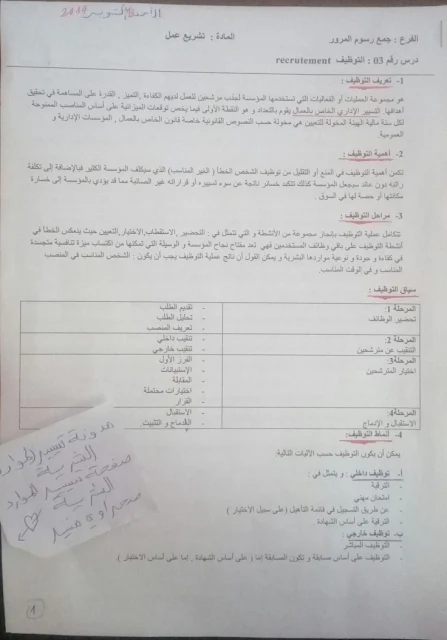 الأحد أكتوبر 2019
الفرع : جمع رسوم المرور
المادة : تشريع عمل
درس رقم 03 : التوظيف recrutement
1- تعريف التوظيف :
هو مجموعة العمليات أو الفعاليات التي تستخدمها المؤسسة لجذب مرشحين للعمل لديهم الكفاءة ,التميز , القدرة على المساهمة في تحقيق
أهدافها التسيير الإداري الخاص بالعمال يقوم بالتعداد و هو النقطة الأولى فيما يخص توقعات الميزانية على أساس المناصب الممنوحة
لكل سنة مالية الهيئة المخولة للتعيين هي مخولة حسب النصوص القانونية خاصة قانون الخاص بالعمال , المؤسسات الإدارية و
العمومية
2- أهمية التوظيف :
تكمن أهمية التوظيف في المنع أو التقليل من توظيف الشخص الخطأ ( الغير المناسب) الذي سيكلف المؤسسة الكثير فبالإضافة إلى تكلفة
راتبه دون عائد سيجعل المؤسسة كذلك تتكبد خسائر ناتجة عن سوء تسييره أو قراراته غير الصائبة مما قد يودي بالمؤسسة إلى خسارة
مكانتها أو حصة لها في السوق .
3- مراحل التوظيف :
تتكامل عملية التوظيف بإنجاز مجموعة من الأنشطة و التي تتمثل في : التحضير ,الاستقطاب,الاختيار,التعيين حيث ينعكس الخطأ في
أنشطة التوظيف على باقي وظائف المستخدمين فهي تعد مفتاح نجاح المؤسسة و الوسيلة التي تمكنها من اكتساب ميزة تنافسية متجسدة
في كفاءة و جودة و نوعية مواردها البشرية و يمكن القول أن ناتج عملية التوظيف يجب أن يكون : الشخص المناسب في المنصب
المناسب و في الوقت المناسب.
سياق التوظيف :
المرحلة 1:
تحضير الوظائف
- تقديم الطلب
- تحليل الطلب
- تعريف المنصب
المرحلة 2:
التنقيب عن مترشحين
- تنقيب داخلي
- تنقيب خارجي
المرحلة3:
اختيار المترشحين
- الفرز الأول
- الإستبيانات
- المقابلة
- اختيارات محتملة
- القرار
المرحلة4:
الاستقبال و الإدماج
- الاستقبال
- الادماج و التثبيت.
4- أنماط التوظيف:
يمكن أن يكون التوظيف حسب الآليات التالية:
أ- توظيف داخلي : و يتمثل في :
- الترقية
- امتحان مهني
- عن طريق التسجيل في قائمة التأهيل (على سبيل الاختيار )
- الترقية على أساس الشهادة
ب- توظيف خارجي :
- التوظيف المباشر
- التوظيف على أساس مسابقة و تكون المسابقة إما ( على أساس الشهادة , إما على أساس الاختبار )
مدونة تسيير الموارد
البشرية
صفحة تسيير الموارد
البشرية
صحراوي مفيد
1